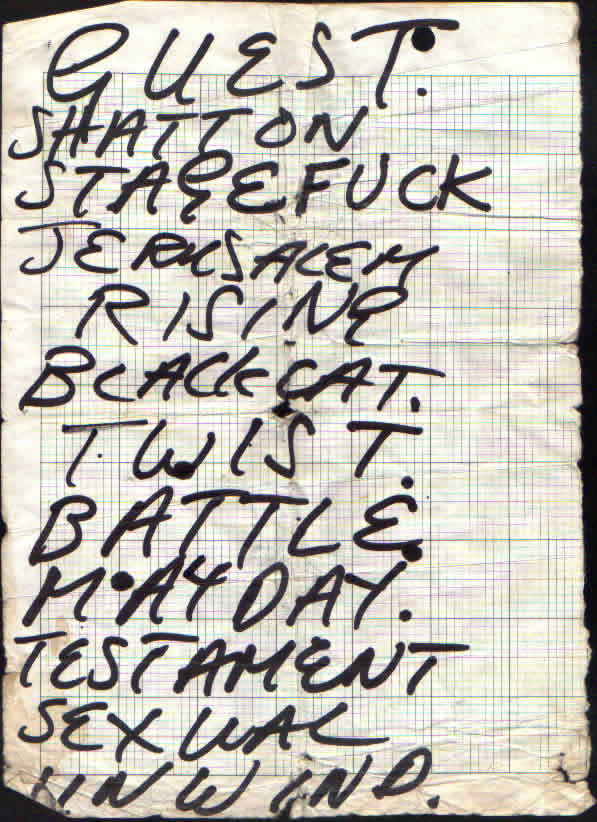 GUEST.
SHATTON
STAGEFUCK
JERUSALEM
RISING
BLACKCAT.
TWIST.
BATTLE.
MAYDAY.
TESTAMENT
SEXUAL
UNWIND.